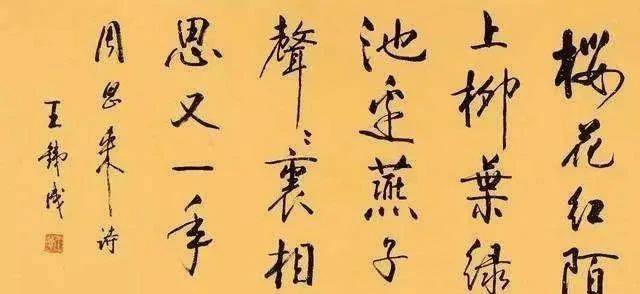 樱花红陌
上柳葉绿
池边燕子
聲〻裏相
思又一年
周恩来诗
王铁成